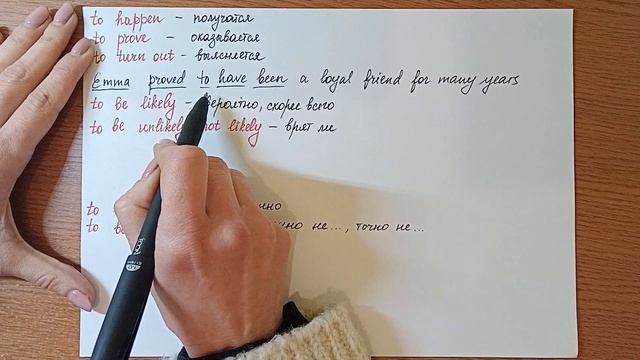 to happen – получатся
to prove – оказывается
to turn out – выясняется
Emma proved to have been a loyal friend for many years
to be likely – вероятно, скорее всего
to be unlikely not likely – врят ли
to
to не..., точно не...